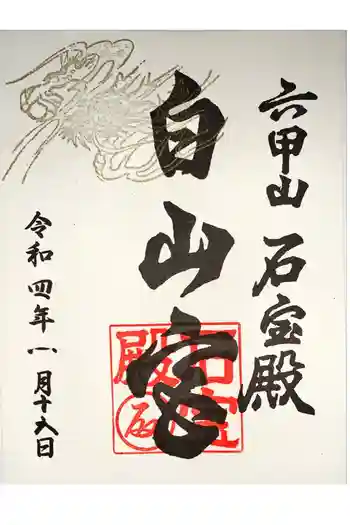 六甲山 石宝殿
白山宮
令和四年八月十日
石宝殿